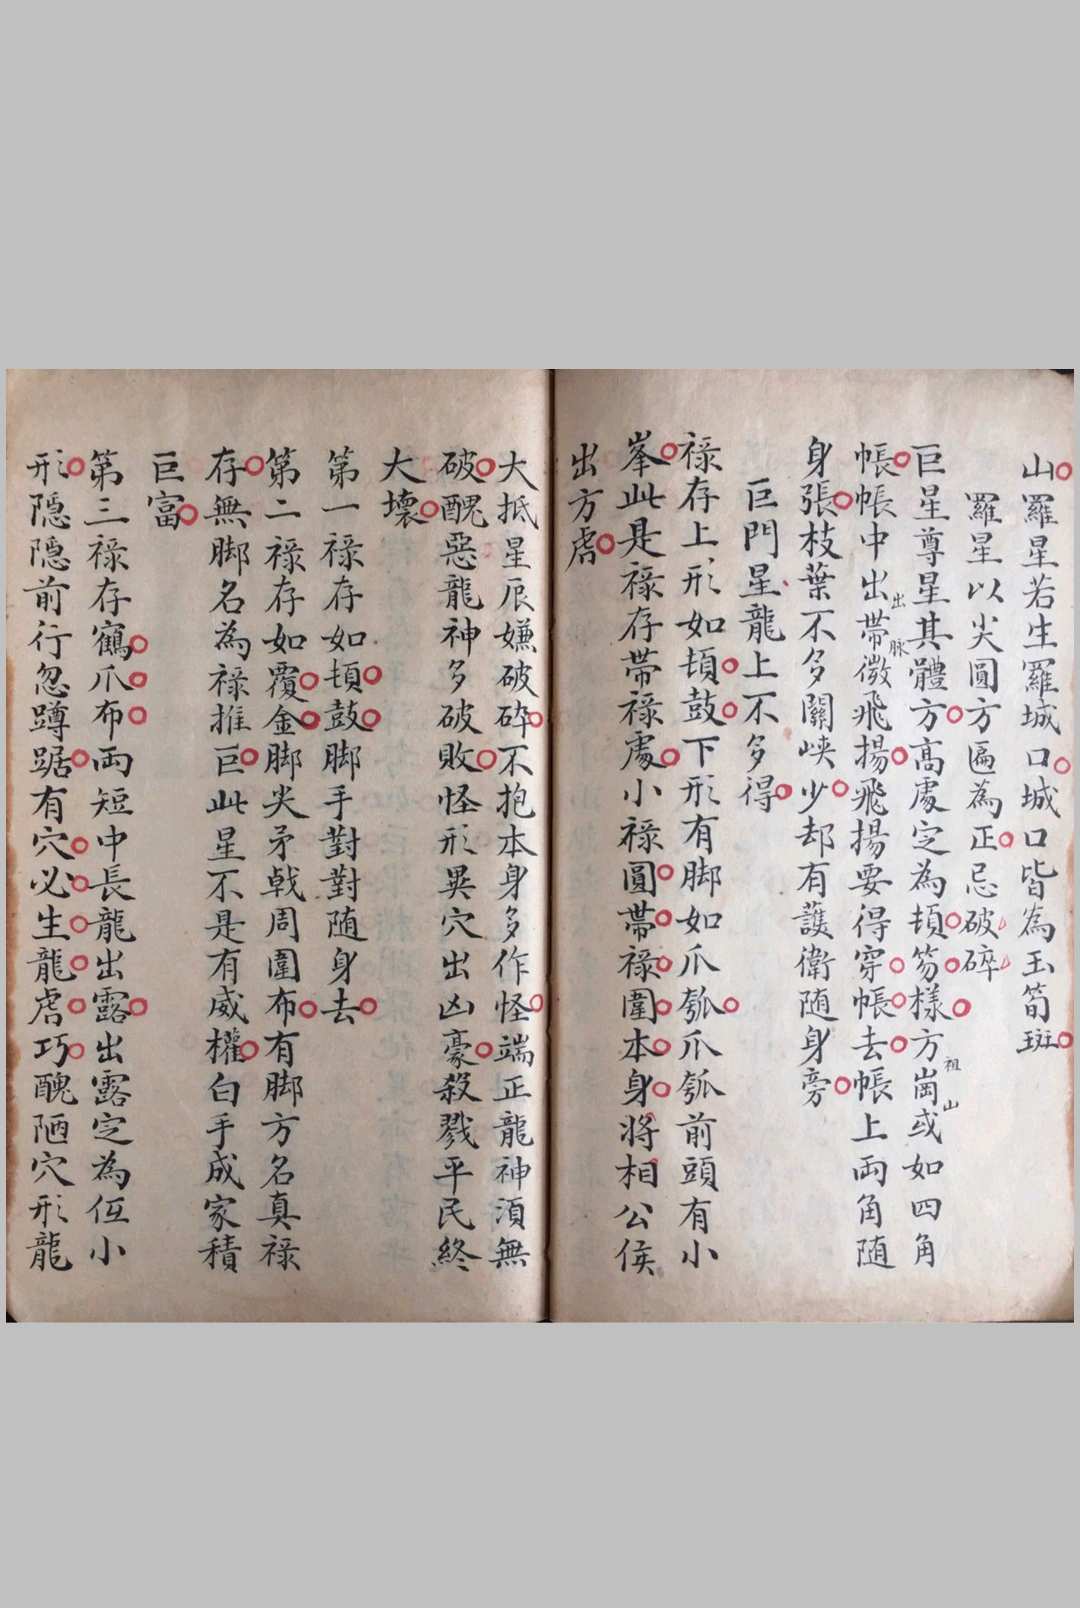 山羅星若生羅城口城口皆為玉筍班
羅星以尖圓方匾為正忌破碎
巨星尊星其體方高處定為頓笏樣方崗或如四角
祖山
帳帳中出帶微飛揚飛揚要得穿帳去帳上両角随
出脉
身張枝葉不多關峽少却有護衛随身旁
巨門星龍上不多得
禄存上形如頓鼓下形有脚如爪瓠爪瓠前頭有小
峯此是禄存帶禄處小禄圓帶禄圍本身將相公侯
出方虐
大抵星辰嫌破碎不抱本身多作怪端正龍神須無
破醜惡龍神多破敗怪形異穴出凶豪殺戮平民終
大壞
第一禄存如頓鼓脚手對對随身去
第二禄存如覆金脚尖矛戟周圍布有脚方名真禄
存無脚名為禄推巨此星不是有威權白手成家積
巨富
第三禄存鶴爪布両短中長龍出露出露定為伍小
形隠隠前行忽蹲踞有穴必生龍虐巧醜陋穴形龍